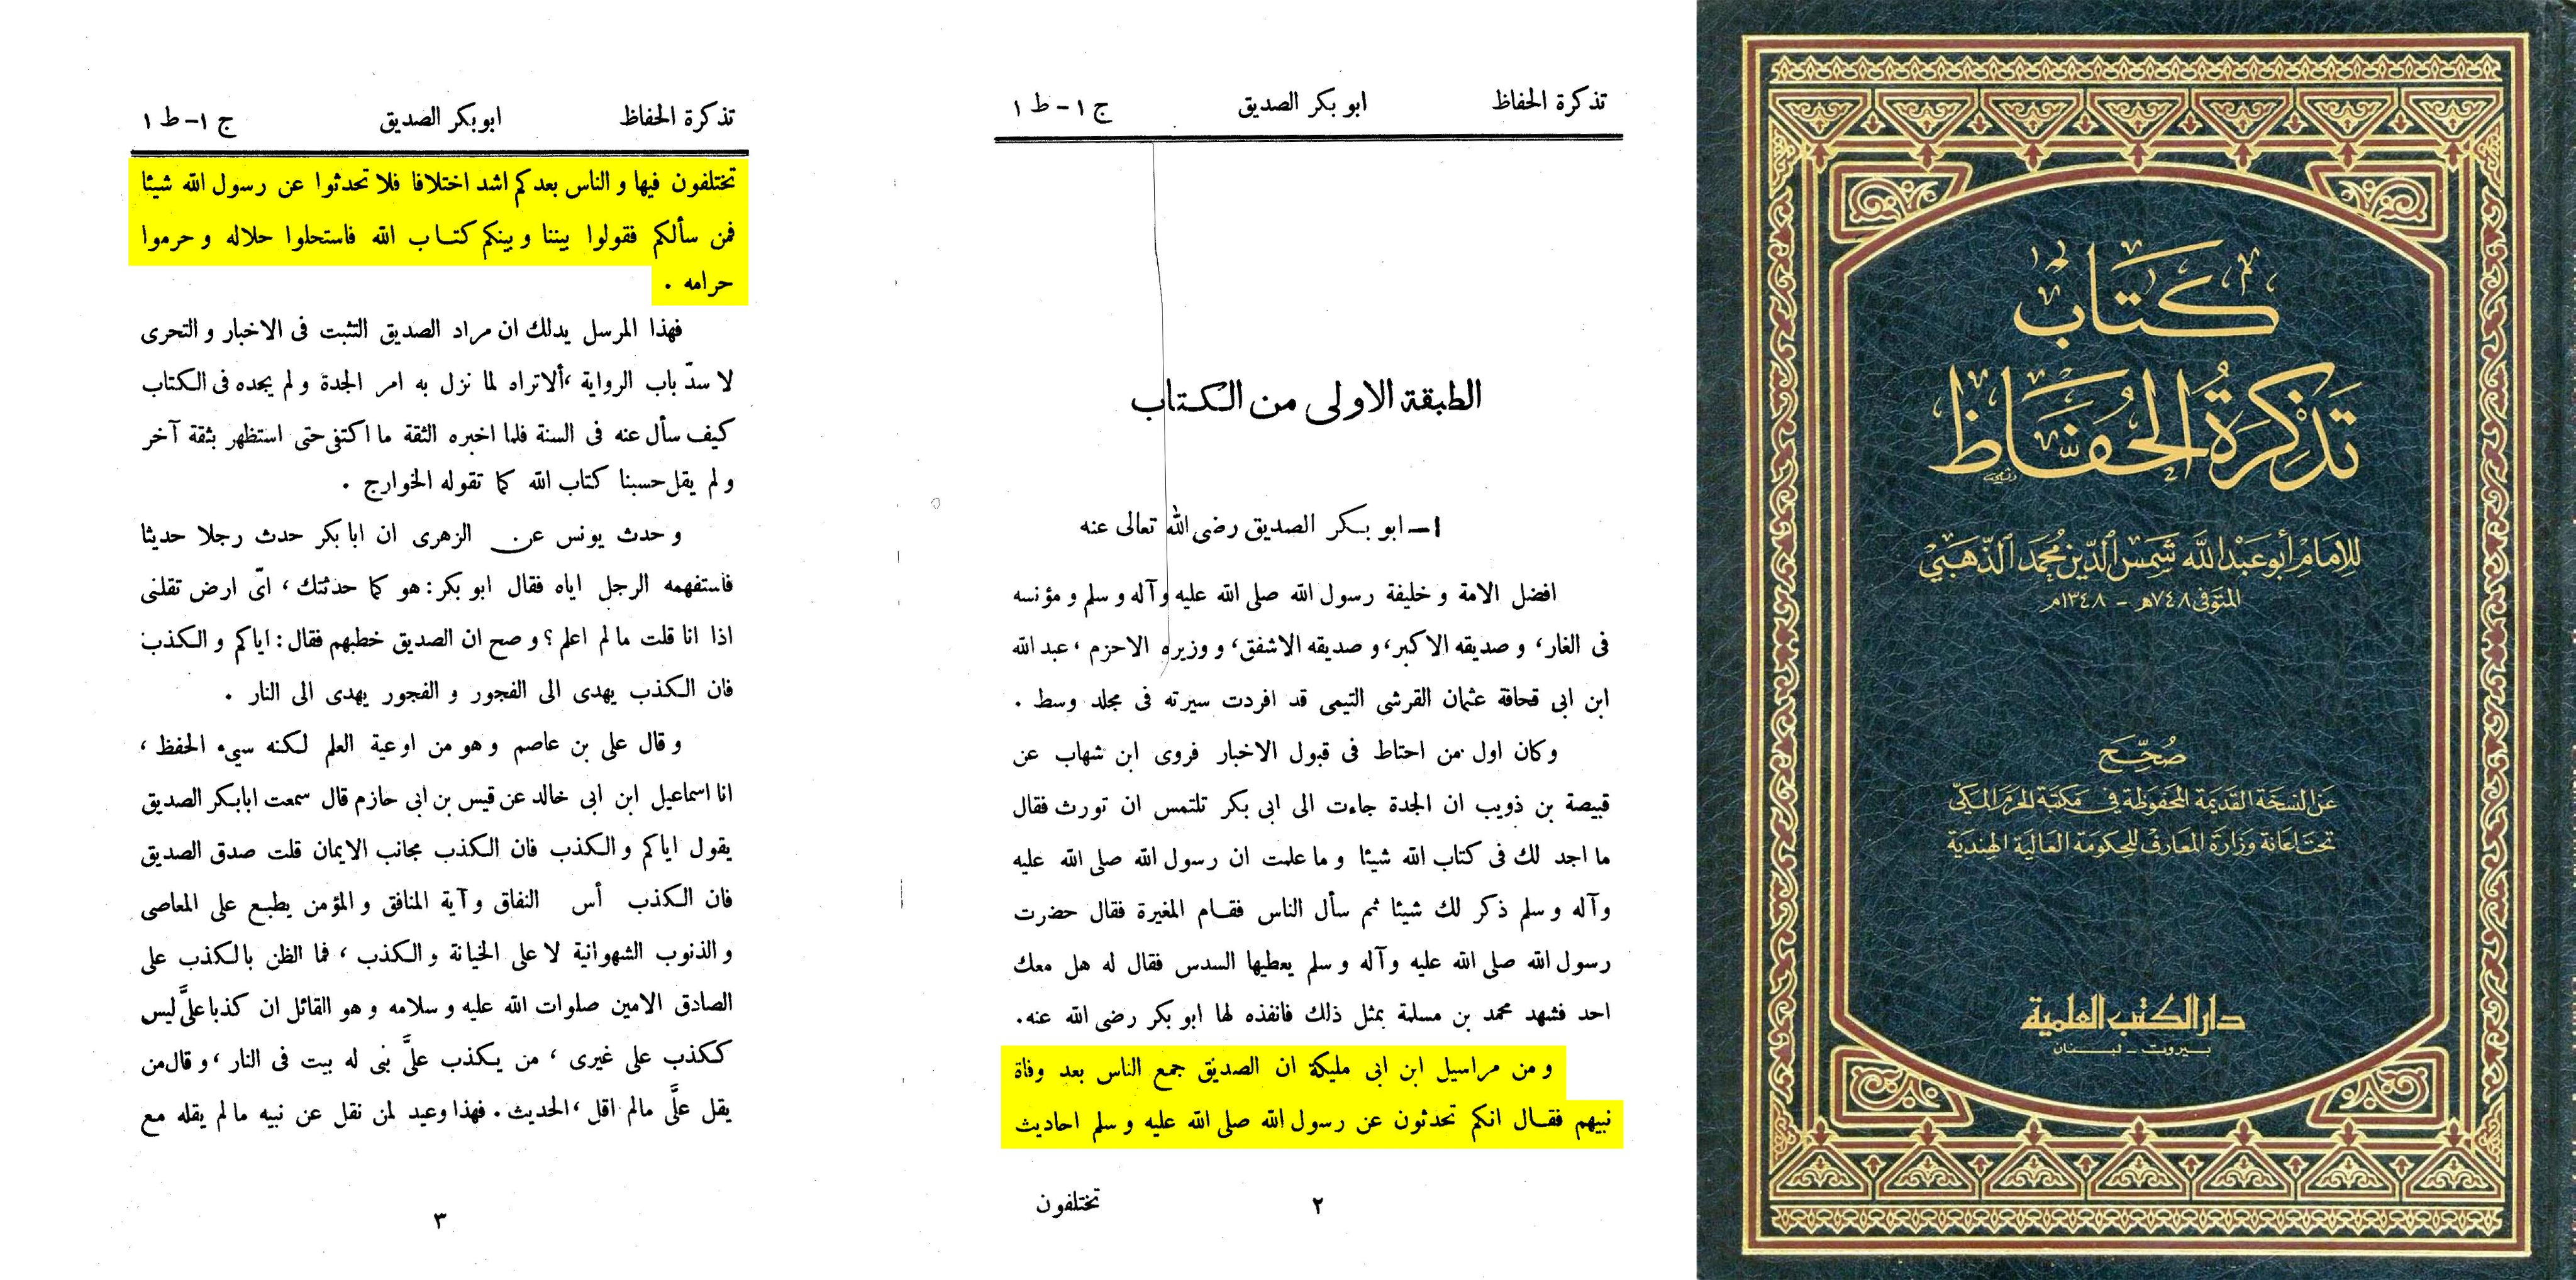 كتاب
تذكرة الحفاظ
للإمام أبو عبد الله شمس الدين محمد الذهبي
المتوفى ٧٤٨هـ - ١٣٤٨م
صُحِّحَ
عن النسخة القديمة المحفوظة في مكتبة الحرم المكي
تحت إعانة وزارة المعارف للحكومة العالية الهندية
دار الكتب العلمية
بيروت - لبنان
تذكرة الحفاظ ابو بكر الصديق ج ١ - ط ١
الطبقة الاولى من الكتاب
١ - ابو بكر الصديق رضى الله تعالى عنه
افضل الامة و خليفة رسول الله صلى الله عليه وآله و سلم و مؤنسه
فى الغار، و صديقه الاكبر، و صديقه الاشفق، و وزيره الاحزم، عبد الله
ابن ابى قحافة عثمان القرشى التيمى قد افردت سيرته فى مجلد وسط .
وكان اول من احتاط فى قبول الاخبار فروى ابن شهاب عن
قبيصة بن ذويب ان الجدة جاءت الى ابى بكر تلتمس ان تورث فقال
ما اجد لك فى كتاب الله شيئا و ما علمت ان رسول الله صلى الله عليه
وآله و سلم ذكر لك شيئا ثم سأل الناس فقام المغيرة فقال حضرت
رسول الله صلى الله عليه وآله و سلم يعطيها السدس فقال له هل معك
احد فشهد محمد بن مسلمة بمثل ذلك فانفذه لها ابو بكر رضى الله عنه.
و من مراسيل ابن ابى مليكة ان الصديق جمع الناس بعد وفاة
نبيهم فقال انكم تحدثون عن رسول الله صلى الله عليه و سلم احاديث
٢ تختلفون
تذكرة الحفاظ ابو بكر الصديق ج ١- ط ١
تختلفون فيها و الناس بعدكم اشد اختلافا فلا تحدثوا عن رسول الله شيئا
فمن سألكم فقولوا بيننا و بينكم كتاب الله فاستحلوا حلاله و حرموا
حرامه .
فهذا المرسل يدلك ان مراد الصديق التثبت فى الاخبار و التحرى
لا سدّ باب الرواية ،ألا تراه لما نزل به امر الجدة و لم يجده فى الكتاب
كيف سأل عنه فى السنة فلما اخبره الثقة ما اكتفى حتى استظهر بثقة آخر
و لم يقل حسبنا كتاب الله كما تقوله الخوارج .
و حدث يونس عن الزهرى ان ابا بكر حدث رجلا حديثا
فاستفهمه الرجل اياه فقال ابو بكر: هو كما حدثتك ، اىّ ارض تقلنى
اذا انا قلت ما لم اعلم ؟ و صح ان الصديق خطبهم فقال: اياكم و الكذب
فان الكذب يهدى الى الفجور و الفجور يهدى الى النار .
و قال على بن عاصم و هو من اوعية العلم لكنه سيىء الحفظ ،
انا اسماعيل ابن ابى خالد عن قيس بن ابى حازم قال سمعت ابا بكر الصديق
يقول اياكم و الكذب فان الكذب مجانب الايمان قلت صدق الصديق
فان الكذب أس النفاق و آية المنافق و المؤمن يطبع على المعاصى
و الذنوب الشهوانية لا على الخيانة و الكذب ، فما الظن بالكذب على
الصادق الامين صلوات الله عليه و سلامه و هو القائل ان كذبا علىَّ ليس
ككذب على غيرى ، من يكذب علىَّ بنى له بيت فى النار ، و قال من
يقل علىَّ مالم اقل ،الحديث . فهذا وعيد لمن نقل عن نبيه ما لم يقله مع
٣